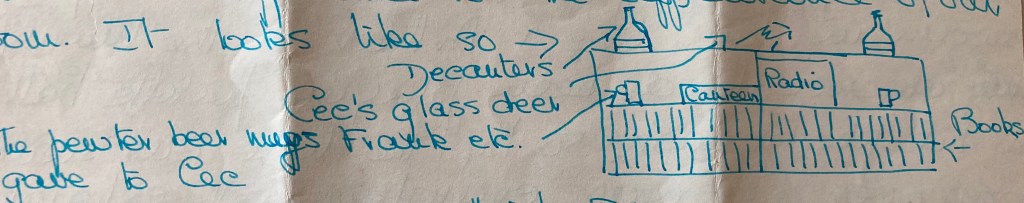 oom. It looks like so →
Decanters
Radio
Cee's glass deer
Canteen
The pewter beer mugs Frank etc.
Books
gave to Cec